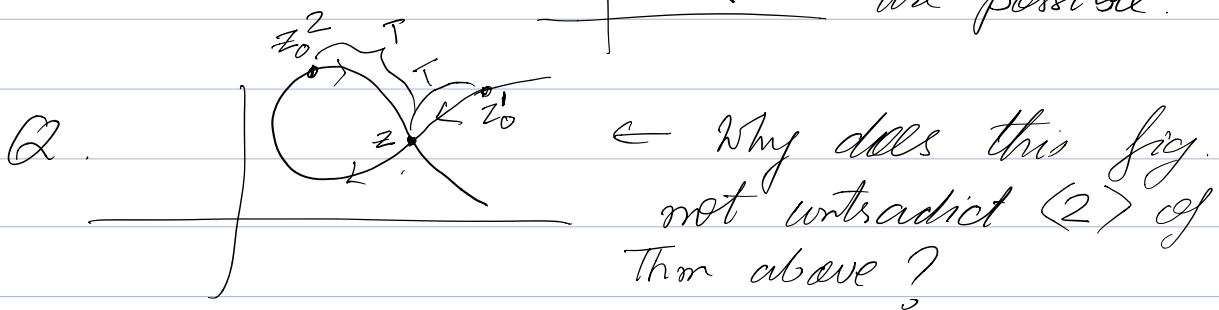 are possible.
z₀² T
T
z₀¹
z
Q. ← Why does this fig.
not contradict <2> of
Thm above?